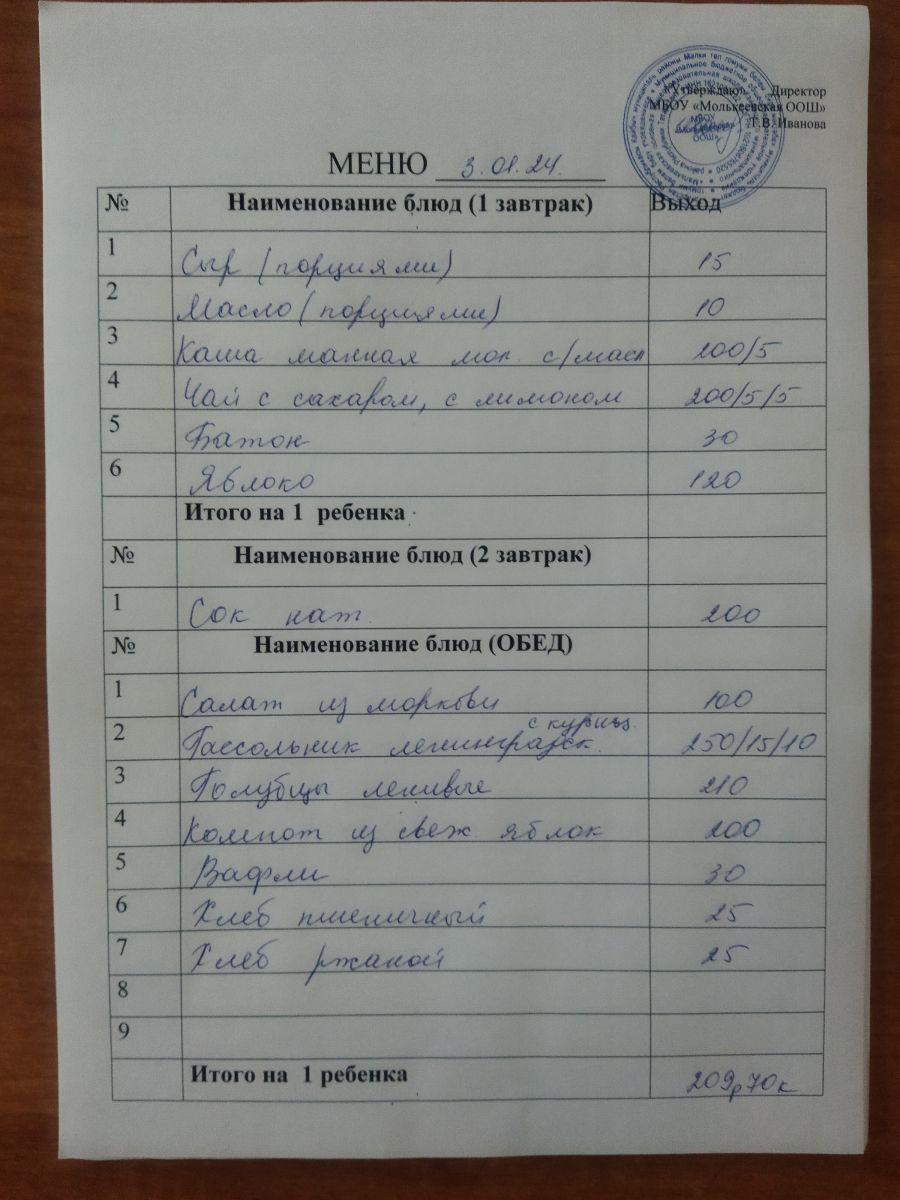 «Утверждаю» Директор
МБОУ «Молькеевская ООШ»
Т.В. Иванова
МЕНЮ 3.01.24.
№ Наименование блюд (1 завтрак) Выход
1 Сыр (порциями) 15
2 Масло (порциями) 10
3 Каша манная мол. с/масл 200/5
4 Чай с сахаром, с лимоном 200/5/5
5 Батон 30
6 Яблоко 120
Итого на 1 ребенка
№ Наименование блюд (2 завтрак)
1 Сок нат. 200
№ Наименование блюд (ОБЕД)
1 Салат из моркови 100
с куриц.
2 Рассольник ленинградск. 250/15/10
3 Голубцы ленивые 210
4 Компот из свеж. яблок 200
5 Вафли 30
6 Хлеб пшеничный 25
7 Хлеб ржаной 25
8
9
Итого на 1 ребенка 209р70к